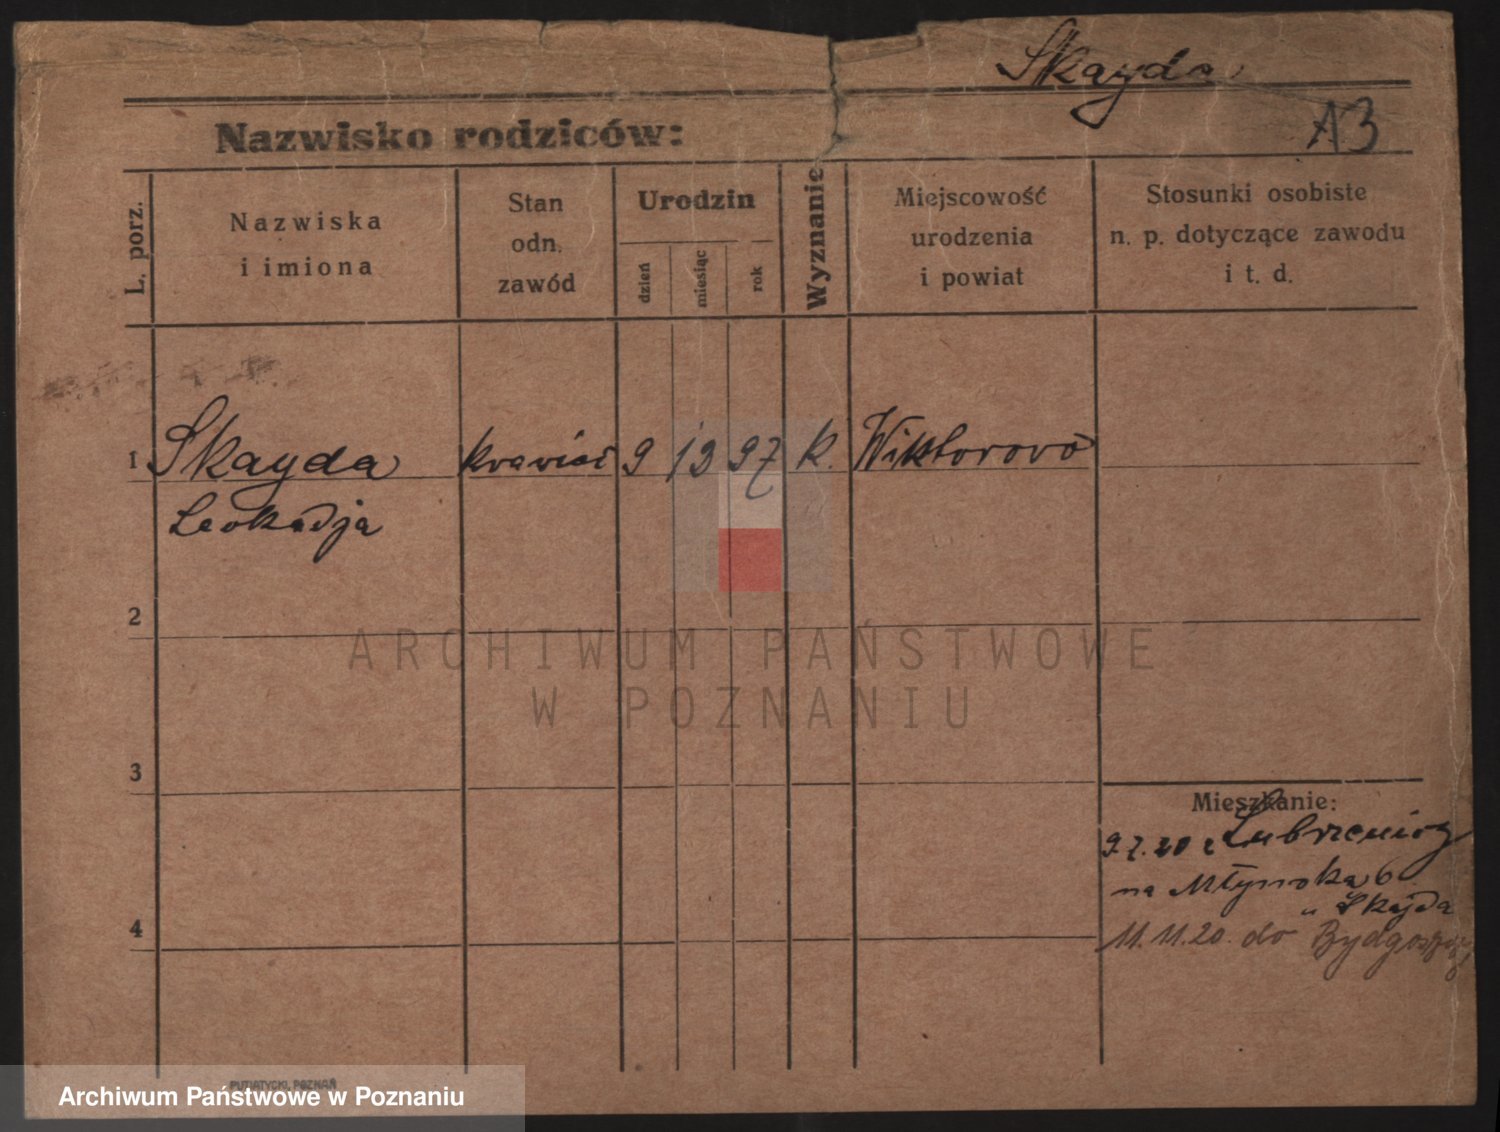 Skayda
A3
Nazwisko rodziców:
L. porz.
Nazwiska
i imiona
Stan
odn.
zawód
Urodzin
dzień
miesiąc
rok
Wyznanie
Miejscowość
urodzenia
i powiat
Stosunki osobiste
n. p. dotyczące zawodu
i t. d.
1 Skayda 9 12 97 k. Wiktorowo
Leokadja
2
3
Mieszkanie:
9.7.20 z
na Młyńska 6
u Skajda
4
11.11.20. do Bydgoszczy
PUTIATYCKI, POZNAŃ
ARCHIWUM PAŃSTWOWE
W POZNANIU
Archiwum Państwowe w Poznaniu